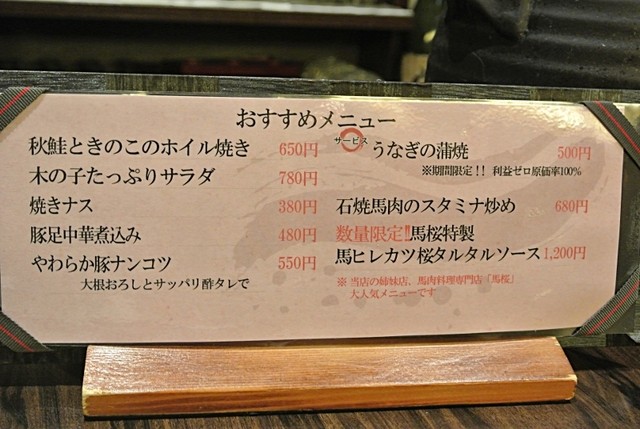 おすすめメニュー
秋鮭ときのこのホイル焼き 650円
木の子たっぷりサラダ 780円
焼きナス 380円
豚足中華煮込み 480円
やわらか豚ナンコツ 550円
大根おろしとサッパリ酢タレで
サービス うなぎの蒲焼 500円
※期間限定!! 利益ゼロ原価率100%
石焼馬肉のスタミナ炒め 680円
数量限定!!馬桜特製
馬ヒレカツ桜タルタルソース 1,200円
※ 当店の姉妹店、馬肉料理専門店「馬桜」
大人気メニューです